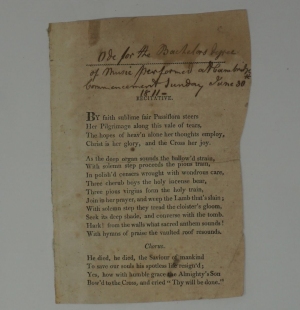 Ode for the Bachelors degree
of Music performed at Cambridge
Commencement Sunday June 30
1811
RECITATIVE.
BY faith sublime fair Passiflora steers
Her Pilgrimage along this vale of tears,
The hopes of heav'n alone her thoughts employ,
Christ is her glory, and the Cross her joy.
As the deep organ sounds the hollow'd strain,
With solemn step proceeds the pious train,
In polish'd censers wrought with wondrous care,
Three cherub boys the holy incense bear,
Three pious virgins form the holy train,
Join in her prayer, and weep the Lamb that's slain;
With solemn step they tread the cloister's gloom,
Seek its deep shade, and converse with the tomb.
Hark! from the walls what sacred anthems sound!
With hymns of praise the vaulted roof resounds.
Chorus.
He died, he died, the Saviour of mankind
To save our souls his spotless life resign'd;
Yes, how with humble grace the Almighty's Son
Bow'd to the Cross, and cried "Thy will be done."